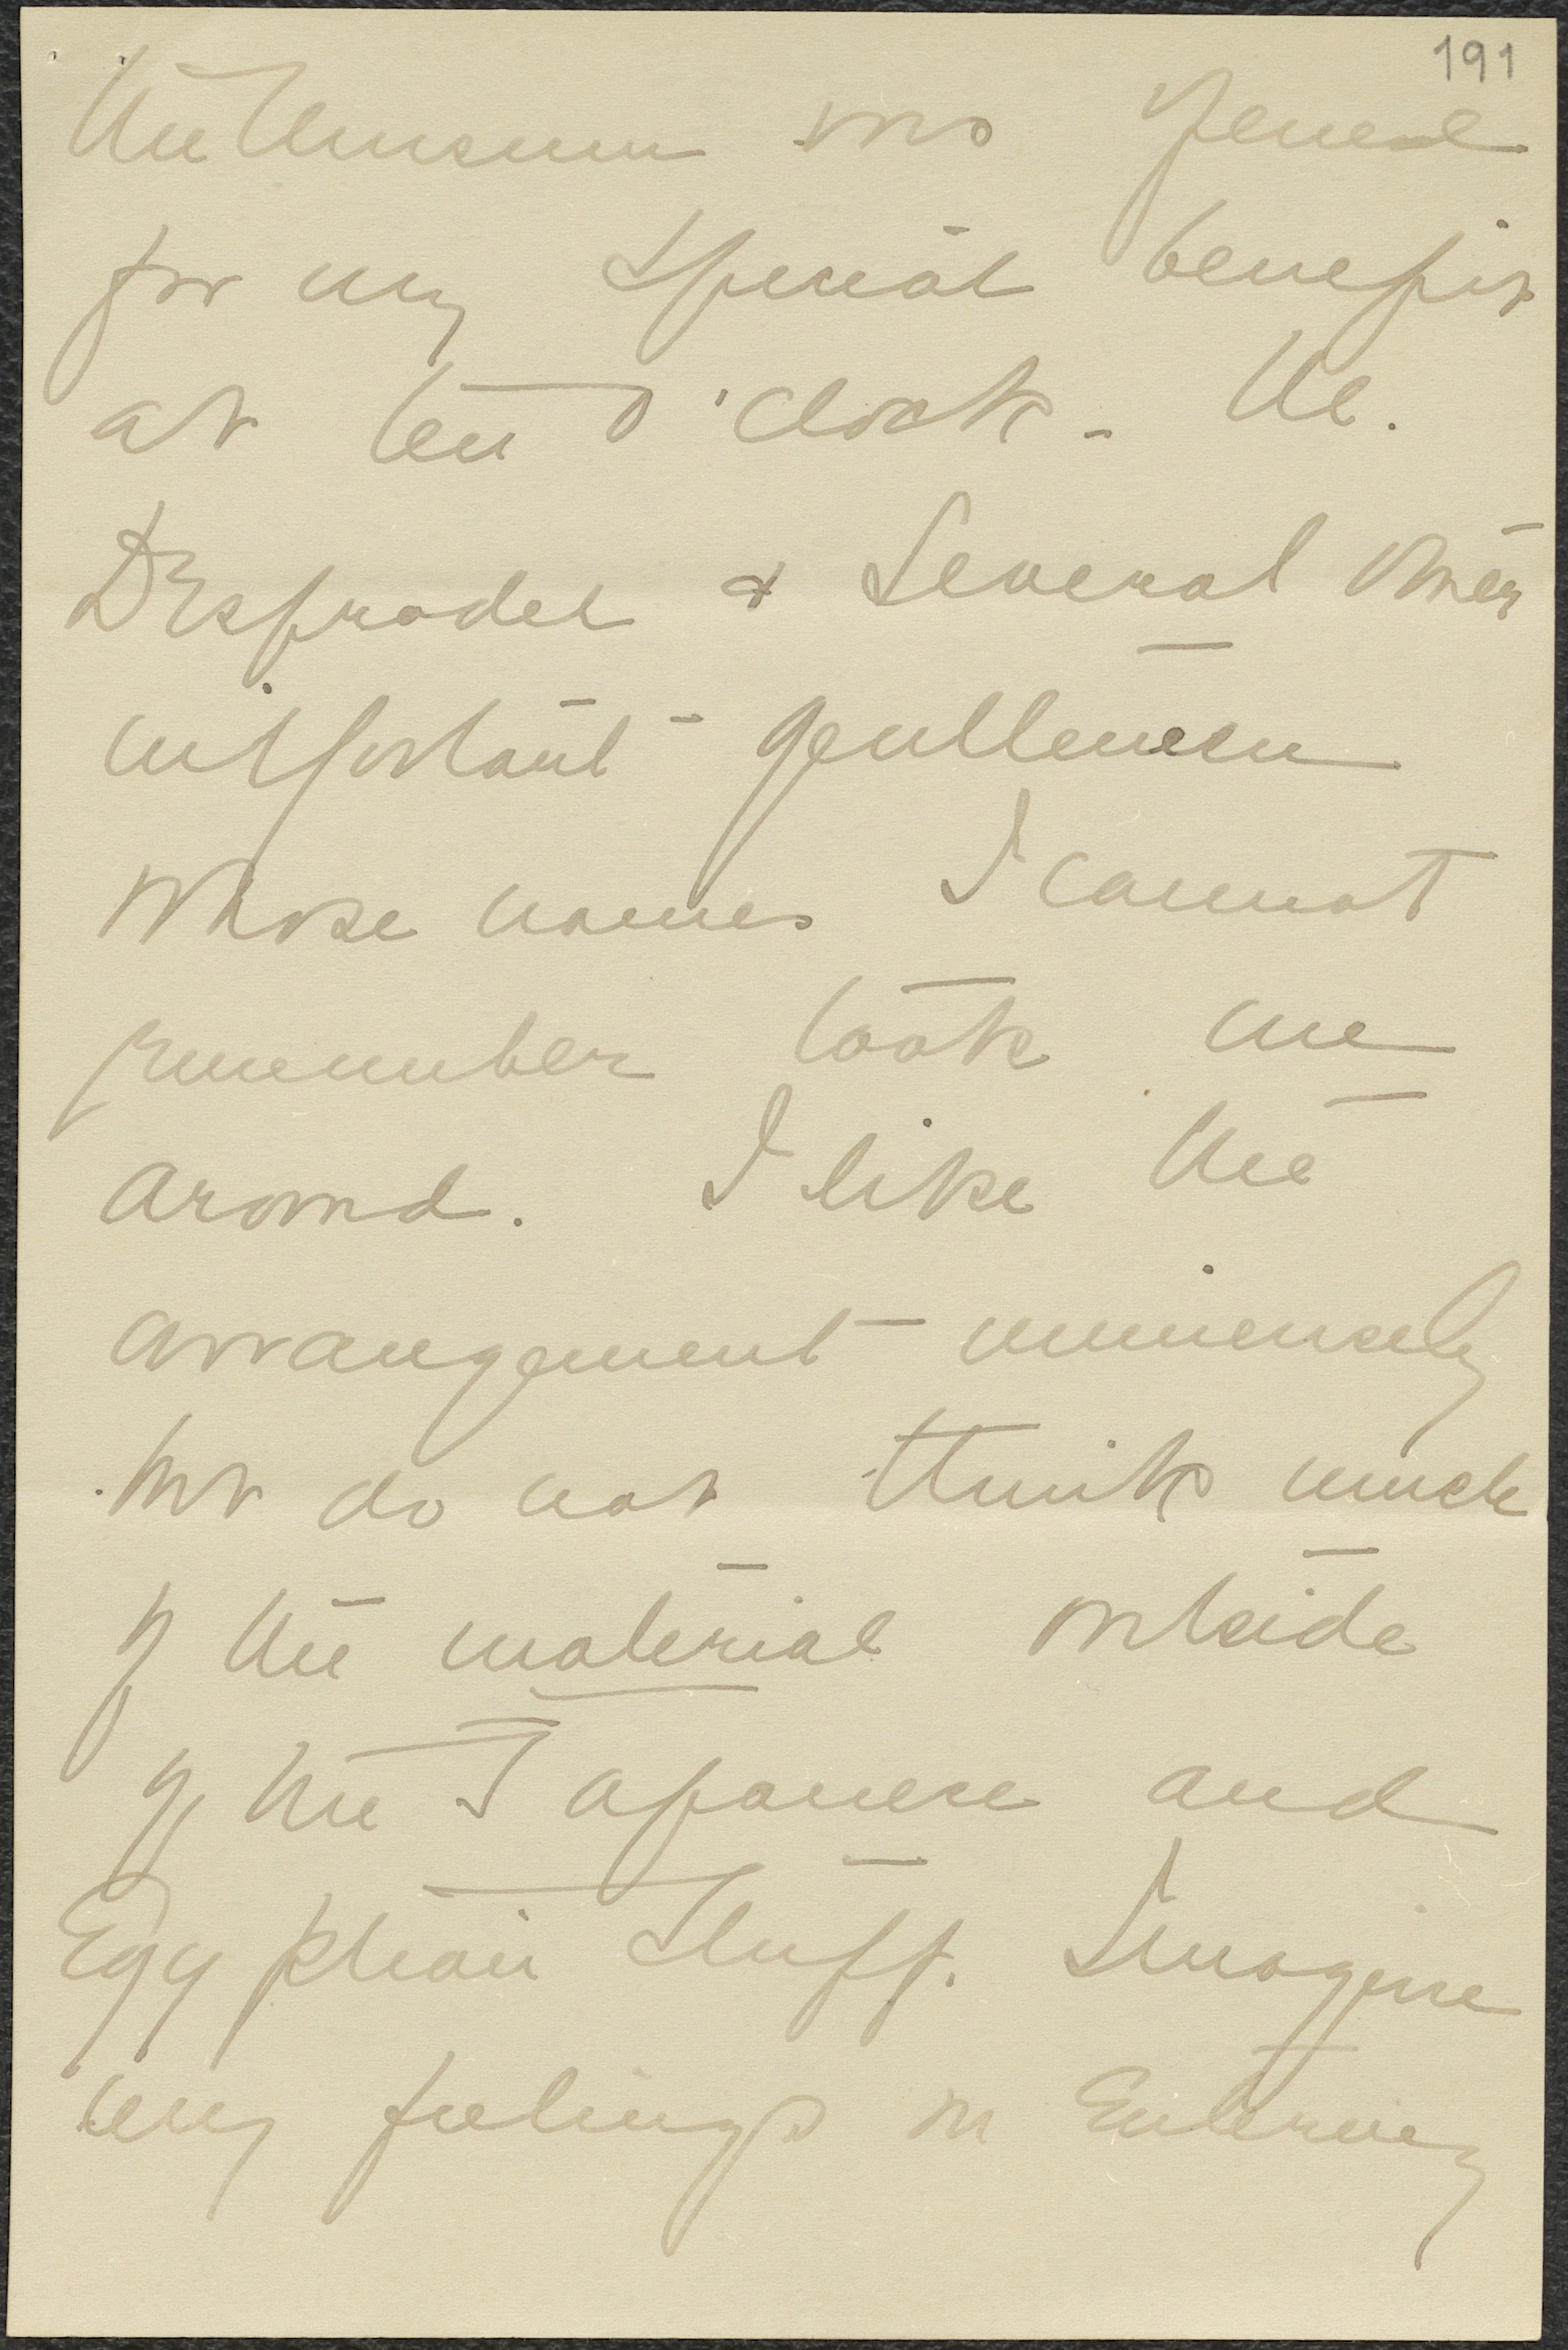 191
the Museum was opened
for my special benefit
at ten o'clock - M.
Despradel & several other
important gentlemen
whose names I cannot
remember took me
around. I like the
arrangement immensely
but do not think much
of the material outside
of the Japanese and
Egyptian stuff. Imagine
my feelings on entering